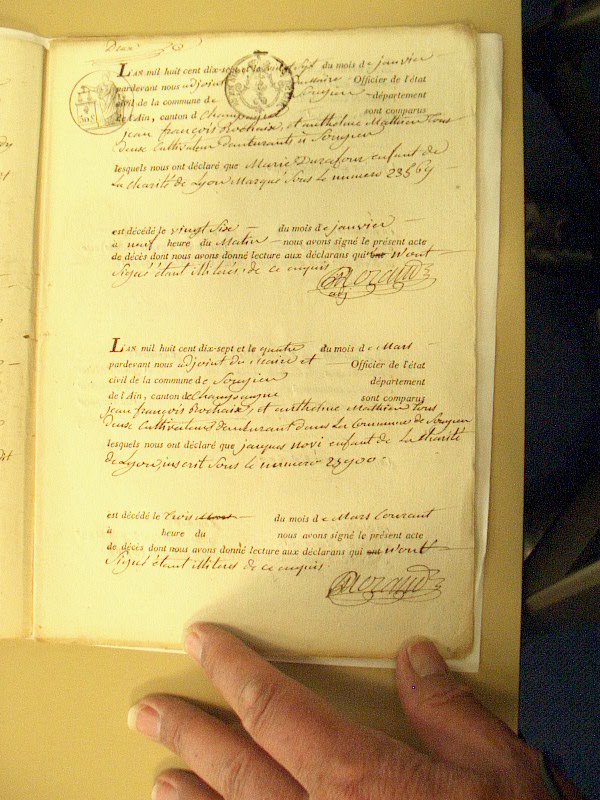 Deux
L'AN mil huit cent dix-sept et le vingt Sept du mois de janvier
pardevant nous adjoint du Maire Officier de l'état
civil de la commune de Songieu département
de l'Ain, canton de Champagne sont comparus
jean françois Rochaix, et anthelme Mathieu tous
deux Cultivateurs demeurants à Songieu
lesquels nous ont déclaré que Marie Durafour, enfant de
La charité de Lyon Marqué Sous Le numero 23569
est décédé le vingt Six du mois de janvier
à neuf heure du Matin nous avons signé le présent acte
de décès dont nous avons donné lecture aux déclarans qui n'ont
Signés étant illiterés de ce enquis
Morand
adj
L'AN mil huit cent dix-sept et le quatre du mois de Mars
pardevant nous adjoint du Maire et Officier de l'état
civil de la commune de Songieu département
de l'Ain, canton de Champagne sont comparus
jean françois Rochaix, et anthelme Mathieu tous
deux Cultivateurs demeurant dans La Commune de Songieu
lesquels nous ont déclaré que jacques novi enfant de La charité
de Lyon, inscrit Sous le numero 25900
est décédé le trois Mars du mois de Mars Courant
à heure du nous avons signé le présent acte
de décès dont nous avons donné lecture aux déclarans qui n'ont
Signés étant illiterés de ce enquis
Morand